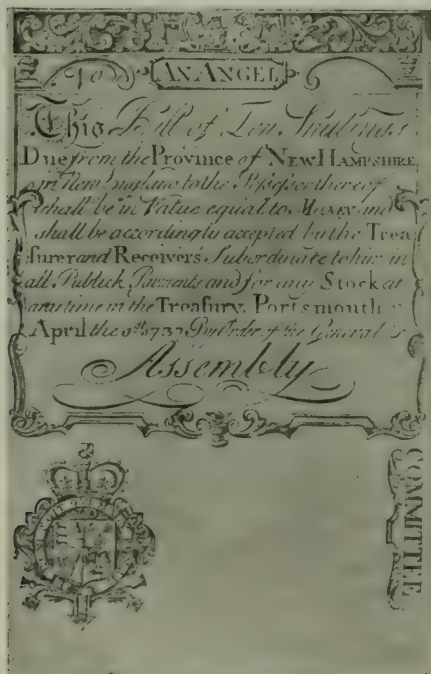 10 AN ANGEL
This Bill of Ten Shillings
Due from the Province of NEW HAMPSHIRE
in New England to the Possessor thereof
shall be in Value equal to MONEY and
shall be accordingly accepted by the Trea
surer and Receivers Subordinate to him in
all Publick Payments and for any Stock at
any time in the Treasury. Portsmouth
April the 1737 By Order of the General
Assembly
COMMITTEE